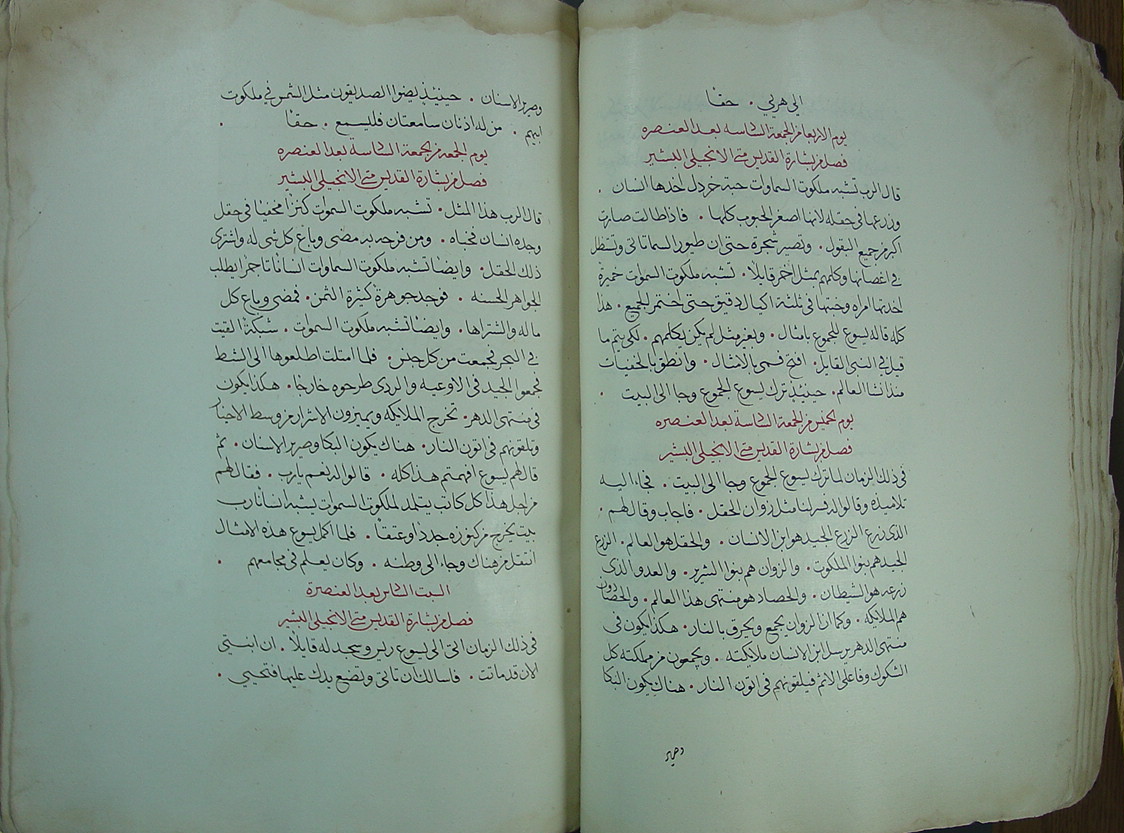 الى هربى . حقا
يوم الاربعا من الجمعة السادسة بعد العنصره
فصل من بشارة القديس متى الانجيلى البشير
قال الرب تشبه ملكوت السماوات حبة خردل اخدها انسان .
وزرعها فى حقله لانها اصغر الحبوب كلها . فاذا طالت صارت
اكبر من جميع البقول . وتصير شجرة حتى ان طيور السما تاتى وتستظل
فى اغصانها وكلمهم بمثل اخر قايلا . تشبه ملكوت السموات خميرة
اخدتها امراه وخبتها فى ثلثة اكيال دقيق حتى اختمر الجميع . هذا
كله قاله يسوع للجموع بامثال . وبغير مثل لم يكن يكلمهم . لكى يتم ما
قيل فى النبى القايل . افتح فمى بالامثال . وانطق بالخفيات
منذ انشا العالم . حينيذ ترك يسوع الجموع وجا الى البيت .
يوم الخميس من الجمعة السادسة بعد العنصره
فصل من بشارة القديس متى الانجيلى البشير
فى ذلك الزمان لما ترك يسوع الجموع وجا الى البيت . فجاء اليه
تلاميذه وقالوا له فسر لنا مثل زوان الحقل . فاجاب وقال لهم .
الذى زرع الزرع الجيد هو ابن الانسان . والحقل هو العالم . الزرع
الجيد هم بنوا الملكوت . والزوان هم بنوا الشرير . والعدو الذى
زرعه هو الشيطان . والحصاد هو منتهى هذا العالم . والحصادون
هم الملايكه . وكما ان الزوان يجمع ويحرق بالنار . هكذا يكون فى
منتهى الدهر يرسل ابن الانسان ملايكته . ويجمعون من مملكته كل
الشكوك وفاعلى الاثم فيلقونهم فى اتون النار . هناك يكون البكا
وصرير
وصرير الاسنان . حينيذ يضوا الصديقون مثل الشمس فى ملكوت
ابيهم . من له اذنان سامعتان فليسمع . حقا .
يوم الجمعه من الجمعة السادسة بعد العنصره
فصل من بشارة القديس متى الانجيلى البشير
قال الرب هذا المثل . تشبه ملكوت السموات كنزا مخفيا فى حقل
وجده انسان فخباه . ومن فرحه به مضى وباع كل شى له واشترى
ذلك الحقل . وايضا تشبه ملكوت السماوات انسانا تاجرا يطلب
الجواهر الحسنه . فوجد جوهرة كثيرة الثمن . فمضى وباع كل
ماله واشتراها . وايضا تشبه ملكوت السموات . شبكة القيت
فى البحر فجمعت من كل جنس . فلما امتلت اطلعوها الى الشط
فجمعوا الجيد فى الاوعيه والردى طرحوه خارجا . هكذا يكون
فى منتهى الدهر . تخرج الملايكه ويميزون الاشرار من وسط الاخيار
وتلقونهم فى اتون النار . هناك يكون البكا وصرير الاسنان . ثم
قال لهم يسوع افهمتم هذا كله . قالوا له نعم يارب . فقال لهم
من اجل هذا كل كاتب يتلمد لملكوت السموات يشبه انسانا رب
بيت يخرج من كنوزه جددا وعتقا . فلما اكمل يسوع هذه الامثال
انتقل من هناك وجاء الى وطنه . وكان يعلم فى مجامعهم .
السبت السادس بعد العنصرة
فصل من بشارة القديس متى الانجيلى البشير
فى ذلك الزمان اتى الى يسوع ريس وسجد له قايلا . ان ابنتى
الان قد ماتت . فاسالك ان تاتى وتضع يدك عليها فتحيى .